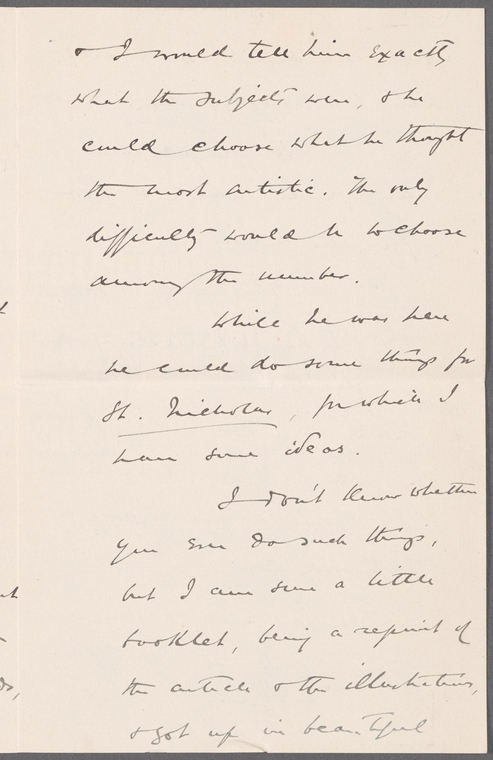 & I would tell him exactly
what the subjects were, & he
could choose what he thought
the most artistic. The only
difficulty would be to choose
among the number.
While he was here
he could do some things for
St. Nicholas, for which I
have some ideas.
I don't know whether
you ever do such things,
but I am sure a little
booklet, being a reprint of
the article & the illustrations,
& got up in beautiful